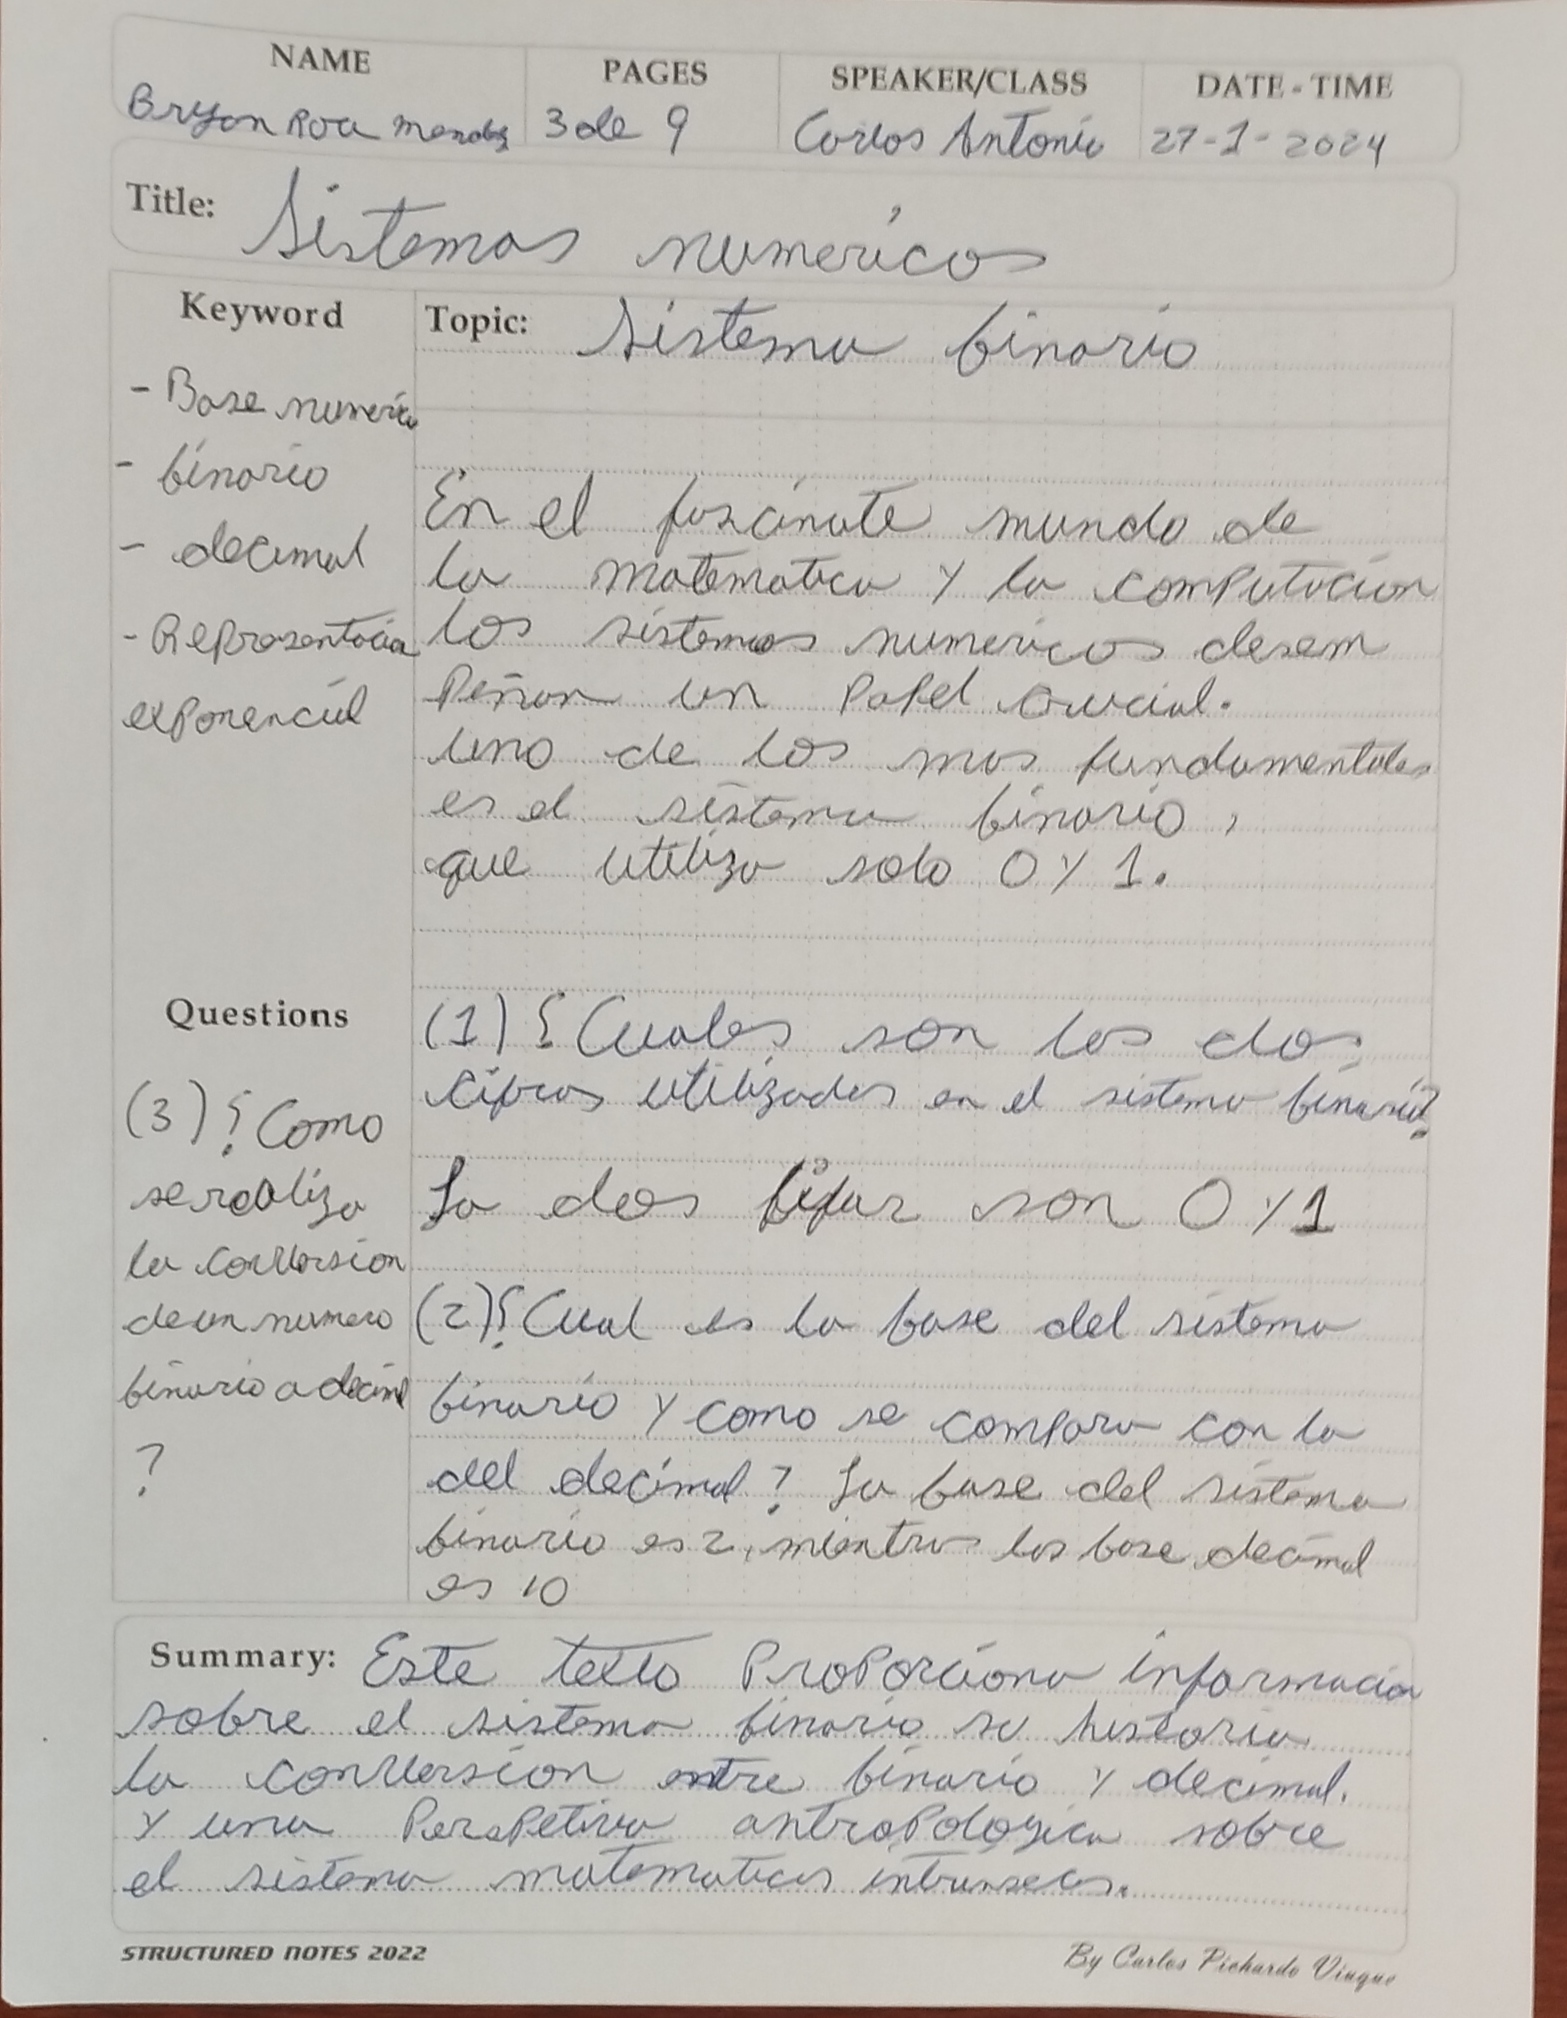 NAME PAGES SPEAKER/CLASS DATE-TIME
Bryan Roa 3 de 9 Carlos Antonio 27-1-2024
Title: Sistemas numéricos
Keyword
- Base numeric
- binario
- decimal
- Representacion
exponencial
Topic: Sistema binario
En el fascinate mundo de
la matematica y la computacion
los sistemas numericos desem
peñan un papel crucial.
uno de los mas fundamentales
es el sistema binario,
que utiliza solo 0 y 1.
Questions
(3) ¿Como
se realiza
la conversion
de un numero
binario a decimal
?
(1) ¿Cuales son los dos
cifras utilizadas en el sistema binario?
La dos son 0 y 1
(2) ¿Cual es la base del sistema
binario y como se compara con la
del decimal? La base del sistema
binario es 2, mientras las base decimal
es 10
Summary: Este texto proporciona informacion
sobre el sistema binario su historia
la conversion entre binario y decimal.
y una perspetiva antropologica sobre
el sistema matematicos intrinsecos.
STRUCTURED NOTES 2022
By Carlos Pichardo Viuque